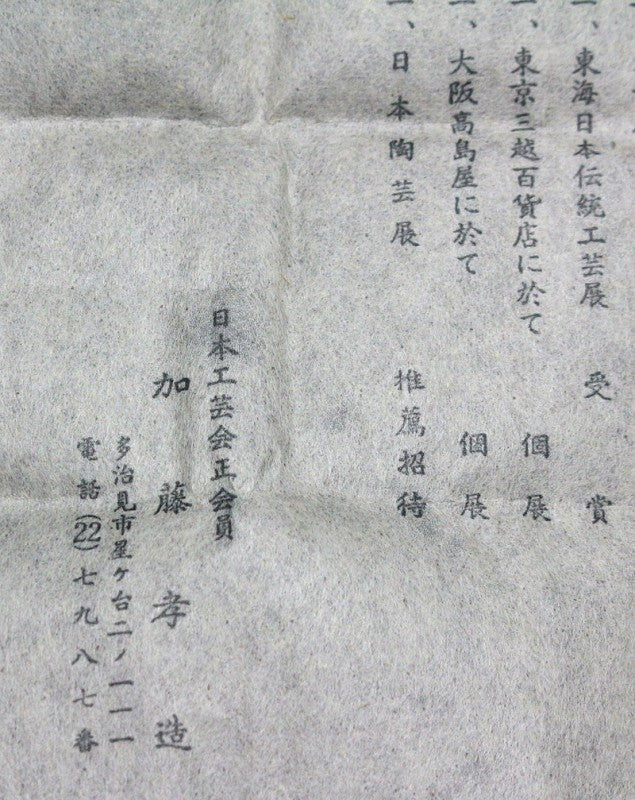 一、東海日本伝統工芸展 受賞
一、東京三越百貨店に於て 個展
一、大阪高島屋に於て 個展
一、日本陶芸展 推薦招待
日本工芸会正会員
加藤孝造
多治見市星ケ台二ノ一一一
電話(22)七九八七番